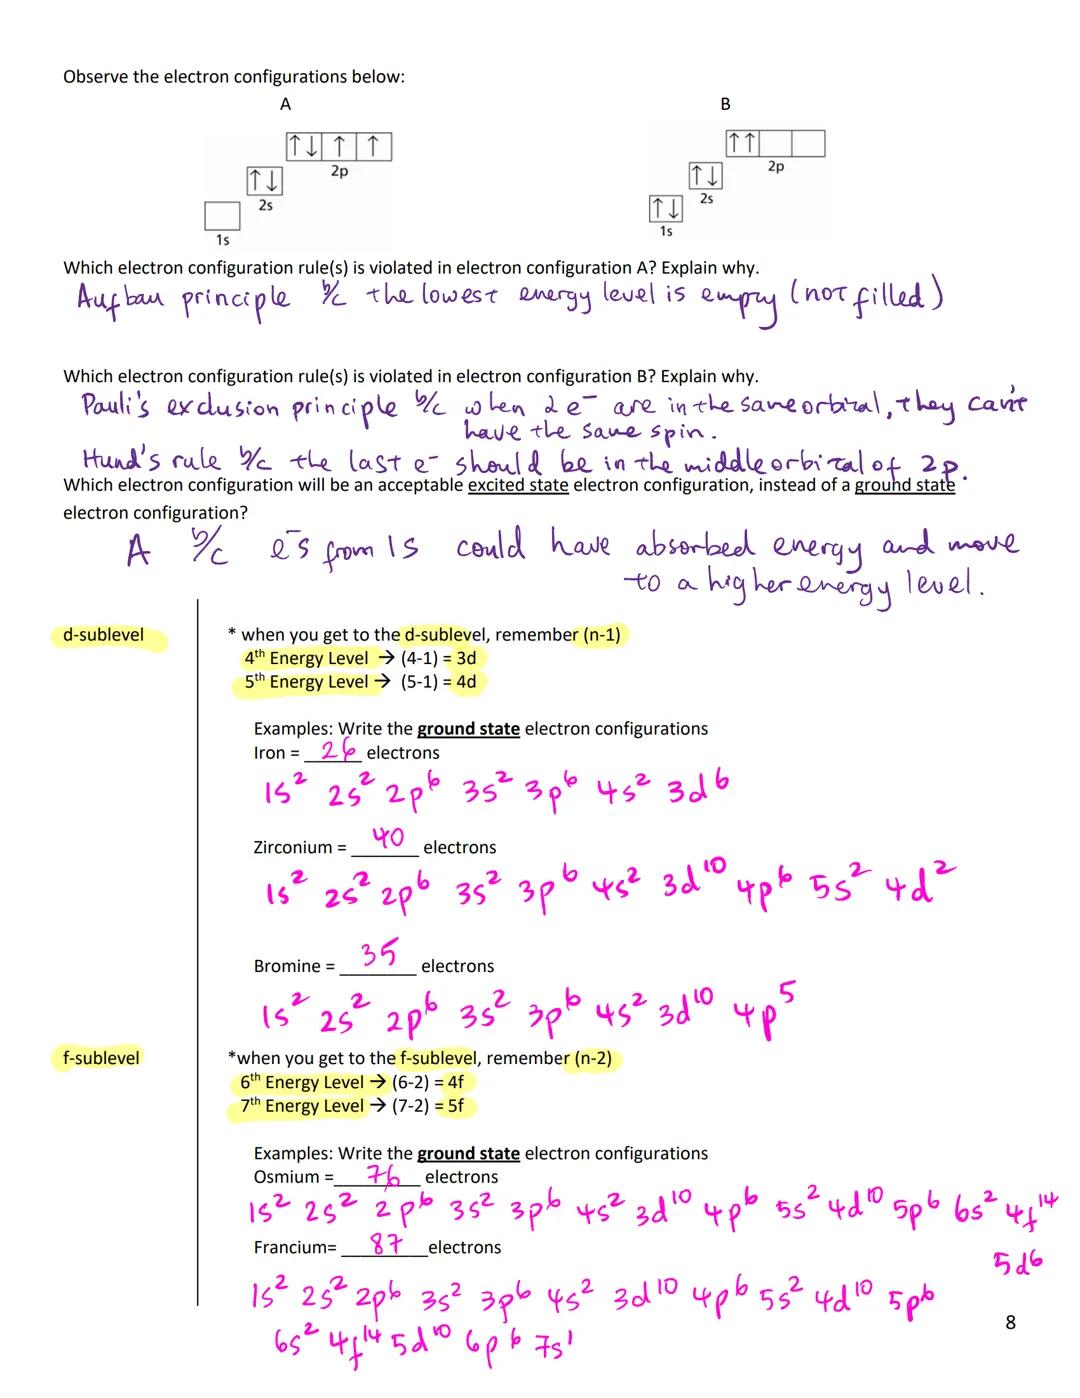 Observe the electron configurations below:
A B
↑↓ ↑ ↑ ↑↑
2p 2p
↑↓ ↑↓
2s 2s
↑↓
1s 1s
Which electron configuration rule(s) is violated in electron configuration A? Explain why.
Aufbau principle b/c the lowest energy level is empy (not filled)
Which electron configuration rule(s) is violated in electron configuration B? Explain why.
Pauli's exclusion principle b/c when 2 e⁻ are in the same orbital, they can't
have the same spin.
Hund's rule b/c the last e⁻ should be in the middle orbital of 2p.
Which electron configuration will be an acceptable excited state electron configuration, instead of a ground state
electron configuration?
A b/c e⁻s from 1s could have absorbed energy and move
to a higher energy level.
d-sublevel * when you get to the d-sublevel, remember (n-1)
4th Energy Level → (4-1) = 3d
5th Energy Level → (5-1) = 4d
Examples: Write the ground state electron configurations
Iron = 26 electrons
1s² 2s² 2p⁶ 3s² 3p⁶ 4s² 3d⁶
Zirconium = 40 electrons
1s² 2s² 2p⁶ 3s² 3p⁶ 4s² 3d¹⁰ 4p⁶ 5s² 4d²
Bromine = 35 electrons
1s² 2s² 2p⁶ 3s² 3p⁶ 4s² 3d¹⁰ 4p⁵
f-sublevel *when you get to the f-sublevel, remember (n-2)
6th Energy Level → (6-2) = 4f
7th Energy Level → (7-2) = 5f
Examples: Write the ground state electron configurations
Osmium = 76 electrons
1s² 2s² 2p⁶ 3s² 3p⁶ 4s² 3d¹⁰ 4p⁶ 5s² 4d¹⁰ 5p⁶ 6s² 4f¹⁴
5d⁶
Francium= 87 electrons
1s² 2s² 2p⁶ 3s² 3p⁶ 4s² 3d¹⁰ 4p⁶ 5s² 4d¹⁰ 5p⁶
6s² 4f¹⁴ 5d¹⁰ 6p⁶ 7s¹
8